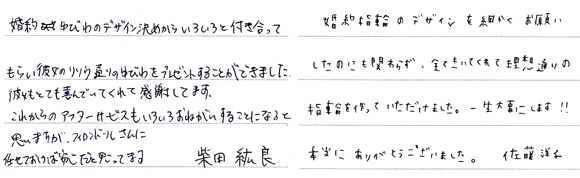 婚約ゆびわのデザイン決めからいろいろと付き合って
もらい彼女のリソウ通りのゆびわをプレゼントすることができました。
彼女もとても喜んでいてくれて感謝してます。
これからのアフターサービスもいろいろおねがいすることになると
思いますが、フィロンドールさんに
任せておけば安心だと思ってます
柴田 紘良
婚約指輪のデザインを細かくお願い
したのにも関わらず、全てきいてくれて理想通りの
指輪を作っていただけました。一生大事にします!!
本当にありがとうございました。 佐藤 洋子